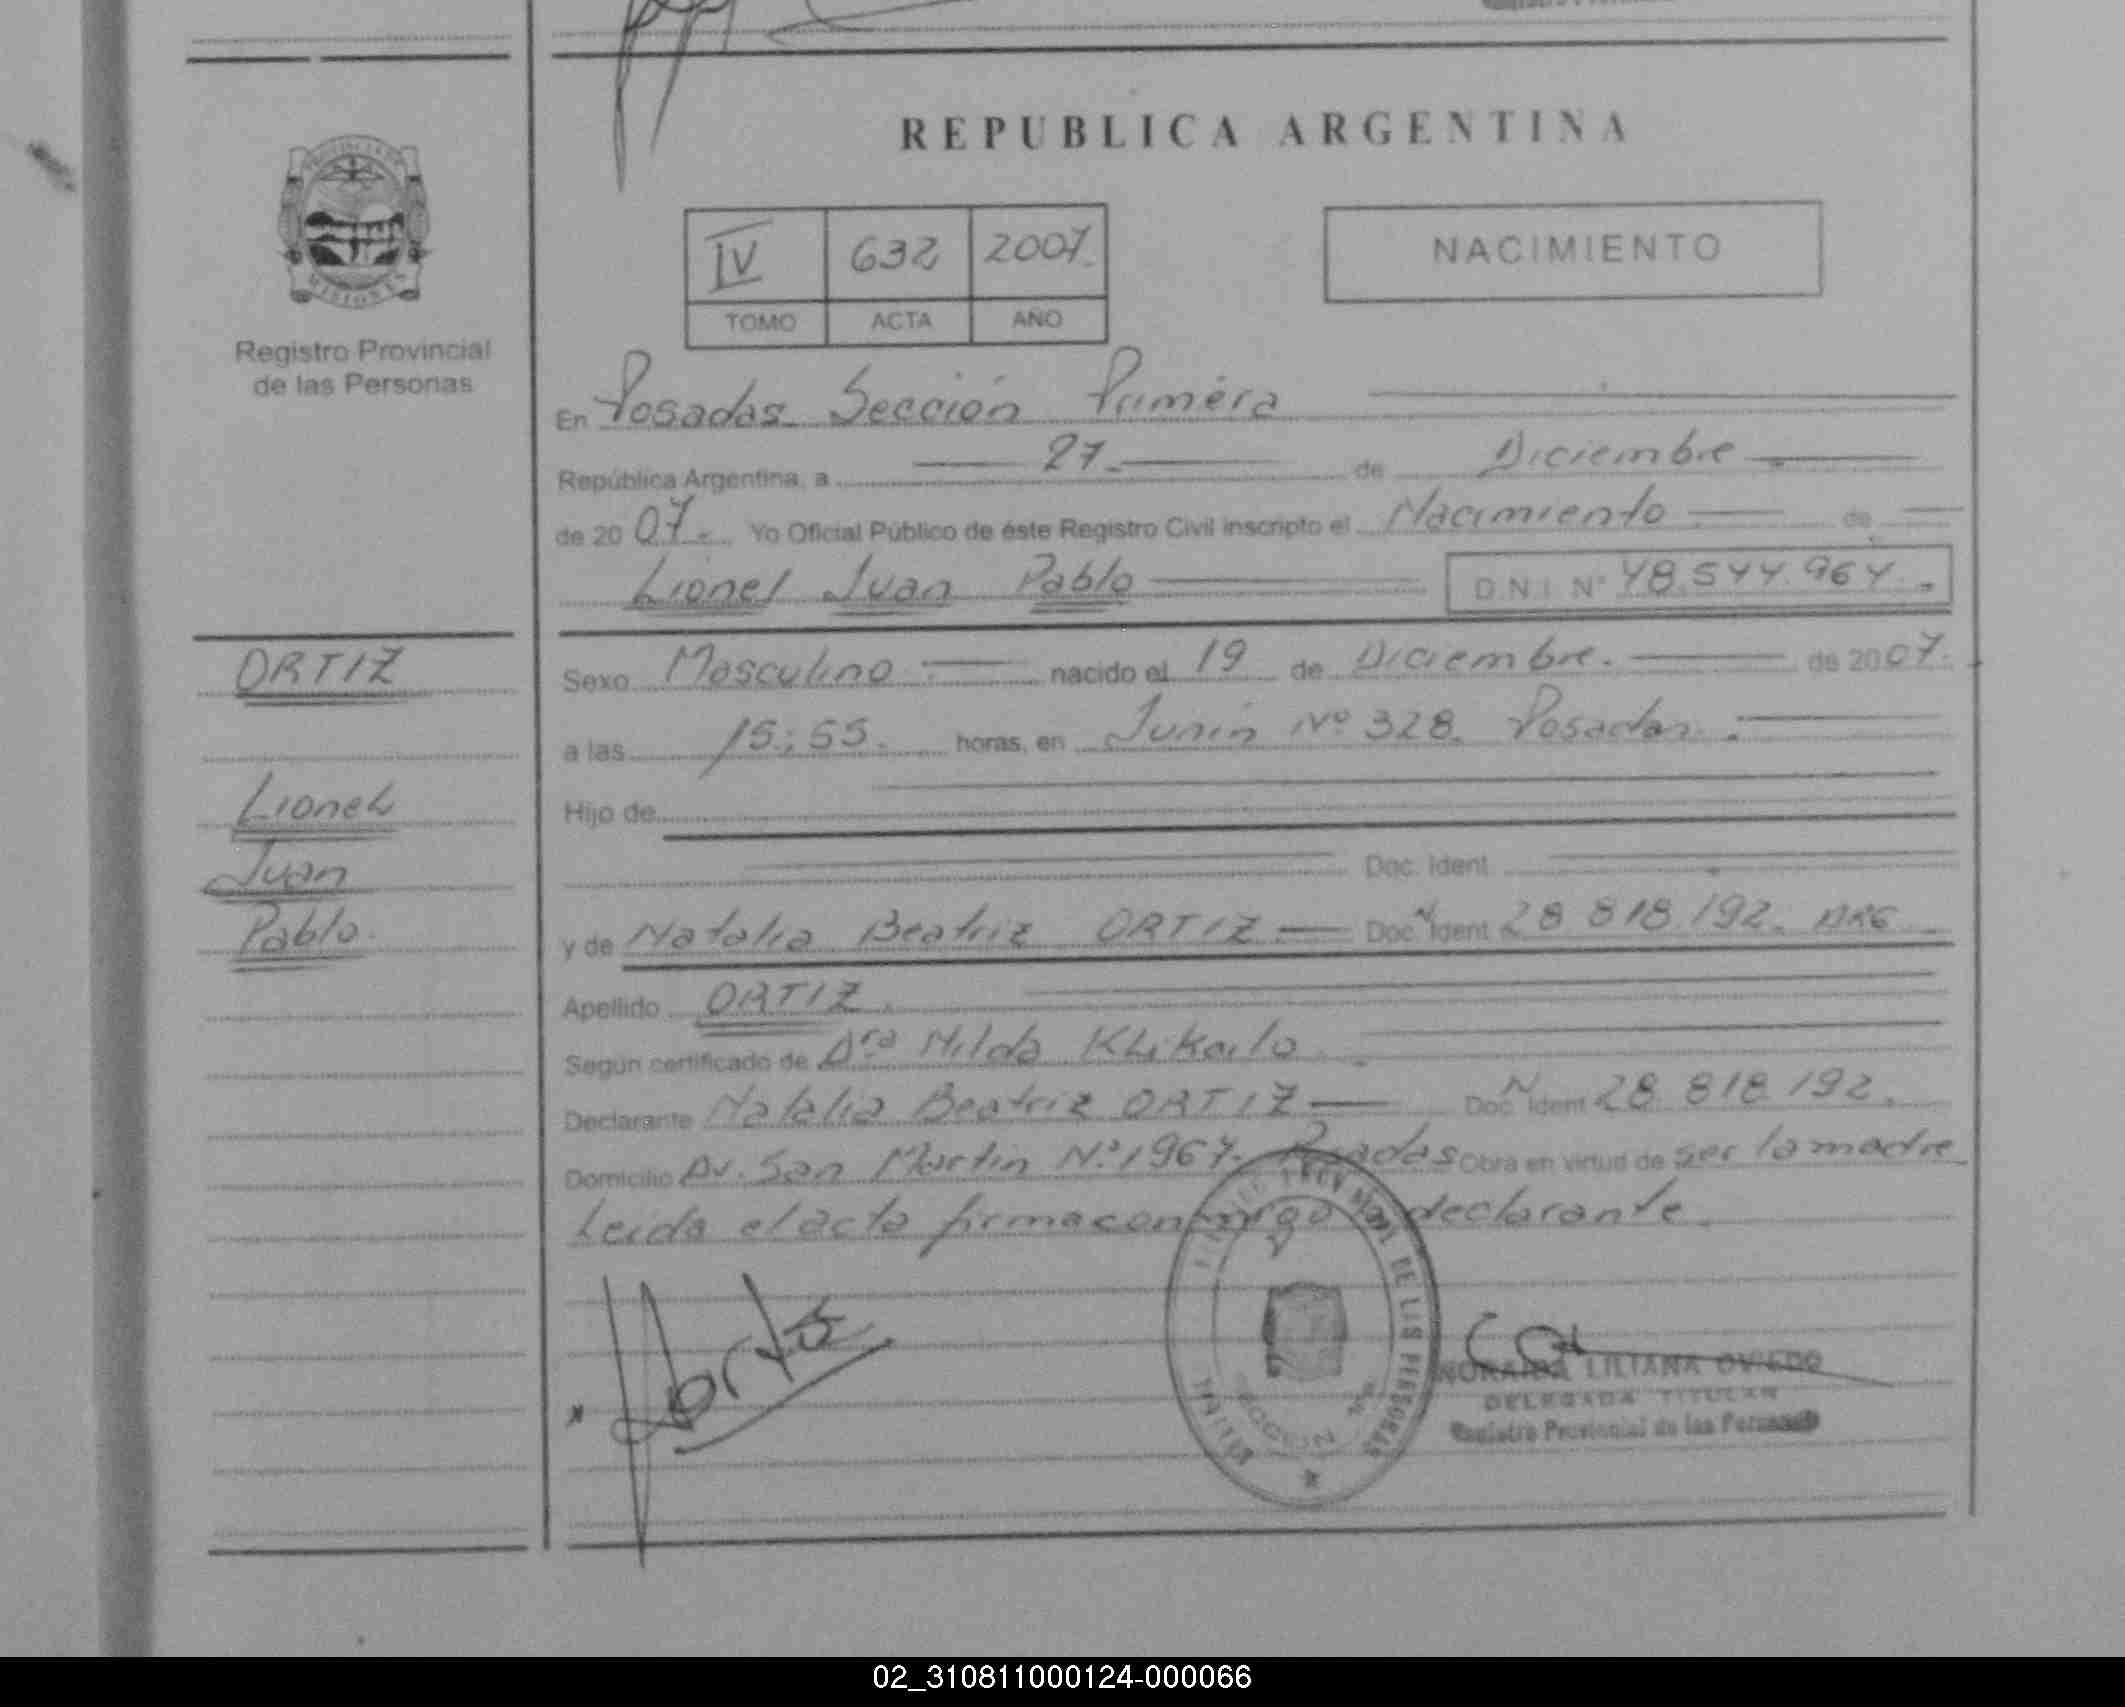 REPUBLICA ARGENTINA
PROVINCIA DE
MISIONES
Registro Provincial
de las Personas
IV 632 2007.
TOMO ACTA AÑO
NACIMIENTO
En Posadas Sección Primera
República Argentina, a 27. de Diciembre
de 20 07. Yo Oficial Público de éste Registro Civil inscripto el Nacimiento de
Lionel Juan Pablo D.N.I. N° 48.544.964.
ORTIZ
Lionel
Juan
Pablo.
Sexo Masculino nacido el 19 de Diciembre. de 2007.
a las 15:55. horas, en Junin Nº 328. Posadas.
Hijo de
Doc. Ident.
y de Natalia Beatriz ORTIZ. Doc. N Ident 28.818.192. ARG
Apellido ORTIZ.
Según certificado de Dra Nilda
Declarante Natalia Beatriz ORTIZ Doc. N Ident 28.818.192.
Domicilio Av. San Martin N° 1964. Posadas Obra en virtud de ser la madre
Leida el acta firma conmigo declarante.
DE LAS PERSONAS
SECCION
MISIONES
LILIANA OVIEDO
DELEGADA TITULAR
Registro Provincial de las Personas
02_310811000124-000066